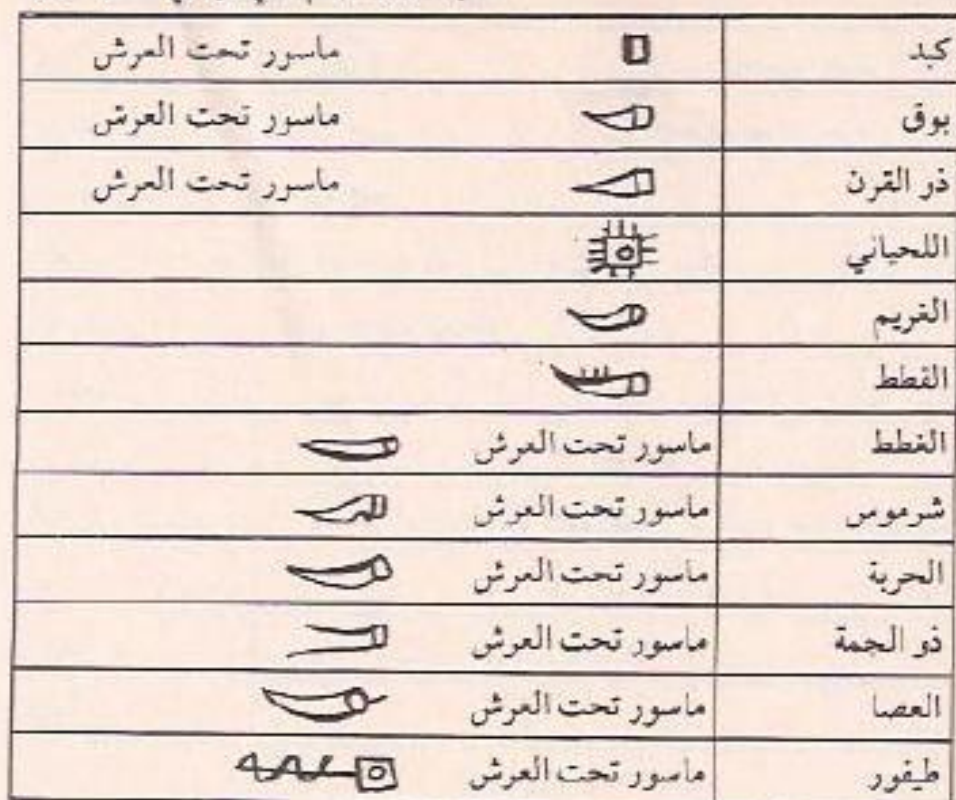 كبد ماسور تحت العرش
بوق ماسور تحت العرش
ذر القرن ماسور تحت العرش
اللحياني
الغريم
القطط
الغطط ماسور تحت العرش
شرموس ماسور تحت العرش
الحربة ماسور تحت العرش
ذو الجمة ماسور تحت العرش
العصا ماسور تحت العرش
طيفور ماسور تحت العرش